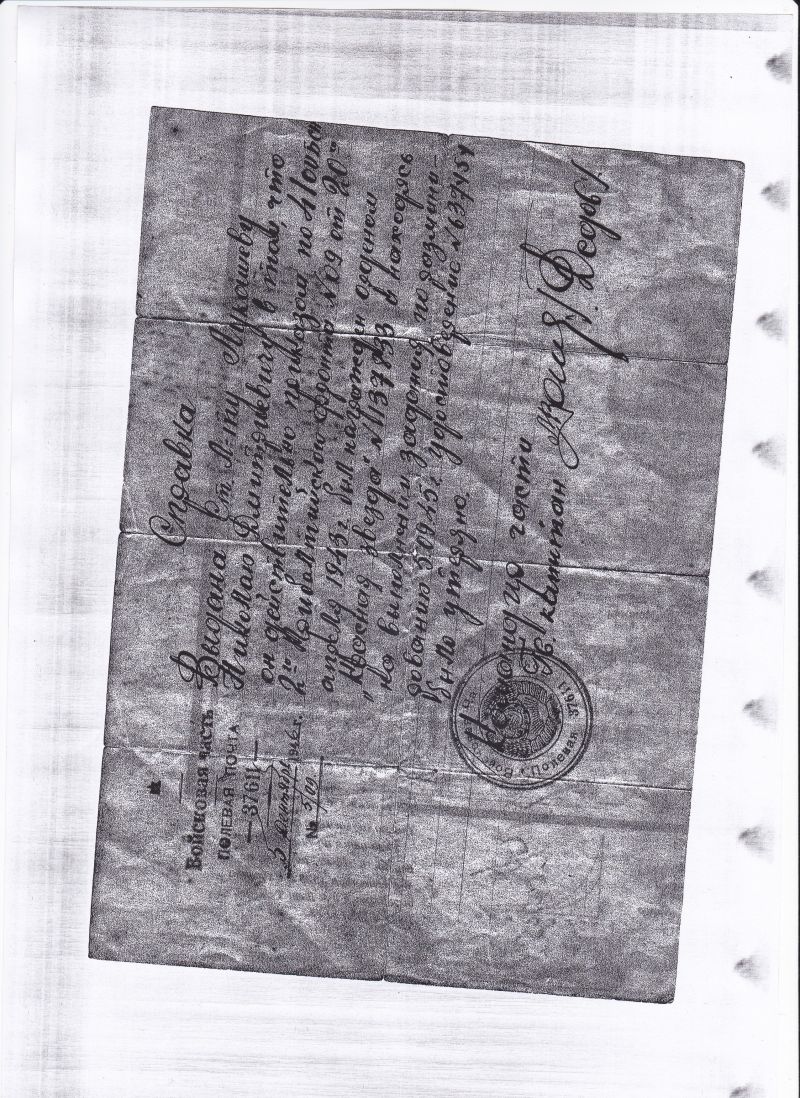 Войсковая часть
ПОЛЕВАЯ ПОЧТА
— 37611 —
3 сентября 1946 г.
№ 3/09
Справка
Выдана Ст. Л-ту Лукашеву
Николаю Дмитриевичу в том, что
он действительно приказом по
2му Прибалтийском фронта №09 от 20го
апреля 1945г. был награжден орденом
"Красная звезда" № 1137833 и находясь
на выполнении задания по размини-
рованию 5.09.45г. удостоверение № 637454
было утеряно.
части
капитан
Полевая
37611